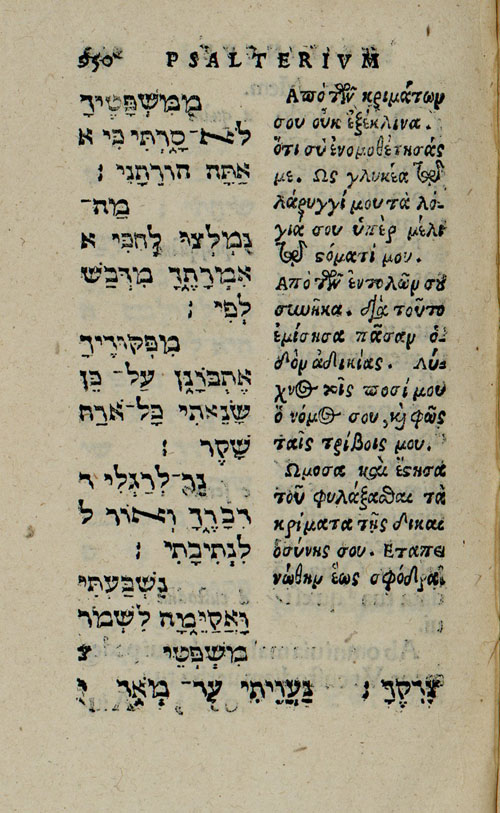 950 PSALTERIVM
מִמִּשְׁפָּטֶיךָ
לֹא־סָרְתִּי כִּי א
אַתָּה הוֹרֵתָנִי׃
מַה־
נִּמְלְצוּ לְחִכִּי א
אִמְרָתֶךָ מִדְּבַשׁ
לְפִי׃
מִפִּקּוּדֶיךָ
אֶתְבּוֹנָן עַל־כֵּן
שָׂנֵאתִי כָּל־אֹרַח
שָׁקֶר׃
נֵר־לְרַגְלִי ד
דְבָרֶךָ וְאוֹר ל
לִנְתִיבָתִי׃
נִשְׁבַּעְתִּי
וָאֲקַיֵּמָה לִשְׁמוֹר
מִשְׁפְּטֵי צ
צִדְקֶךָ׃ נַעֲוֵיתִי עַד־מְאֹד י
Απὸ τῶν κριμάτων
σου οὐκ ἐξέκλινα.
ὅτι σὺ ἐνομοθέτησάς
με. Ως γλυκέα τῷ
λάρυγγί μου τὰ λό-
γιά σου ὑπὲρ μέλι
τῷ στόματί μου.
Απὸ τῶν ἐντολῶν σου
συνῆκα. διὰ τοῦτο
ἐμίσησα πᾶσαν ὁ-
δὸν ἀδικίας. Λύ-
χνος τοῖς ποσί μου
ὁ νόμος σου, καὶ φῶς
ταῖς τρίβοις μου.
Ωμοσα καὶ ἔστησα
τοῦ φυλάξασθαι τὰ
κρίματα τῆς δικαι
οσύνης σου. Εταπει
νώθην ἕως σφόδρα